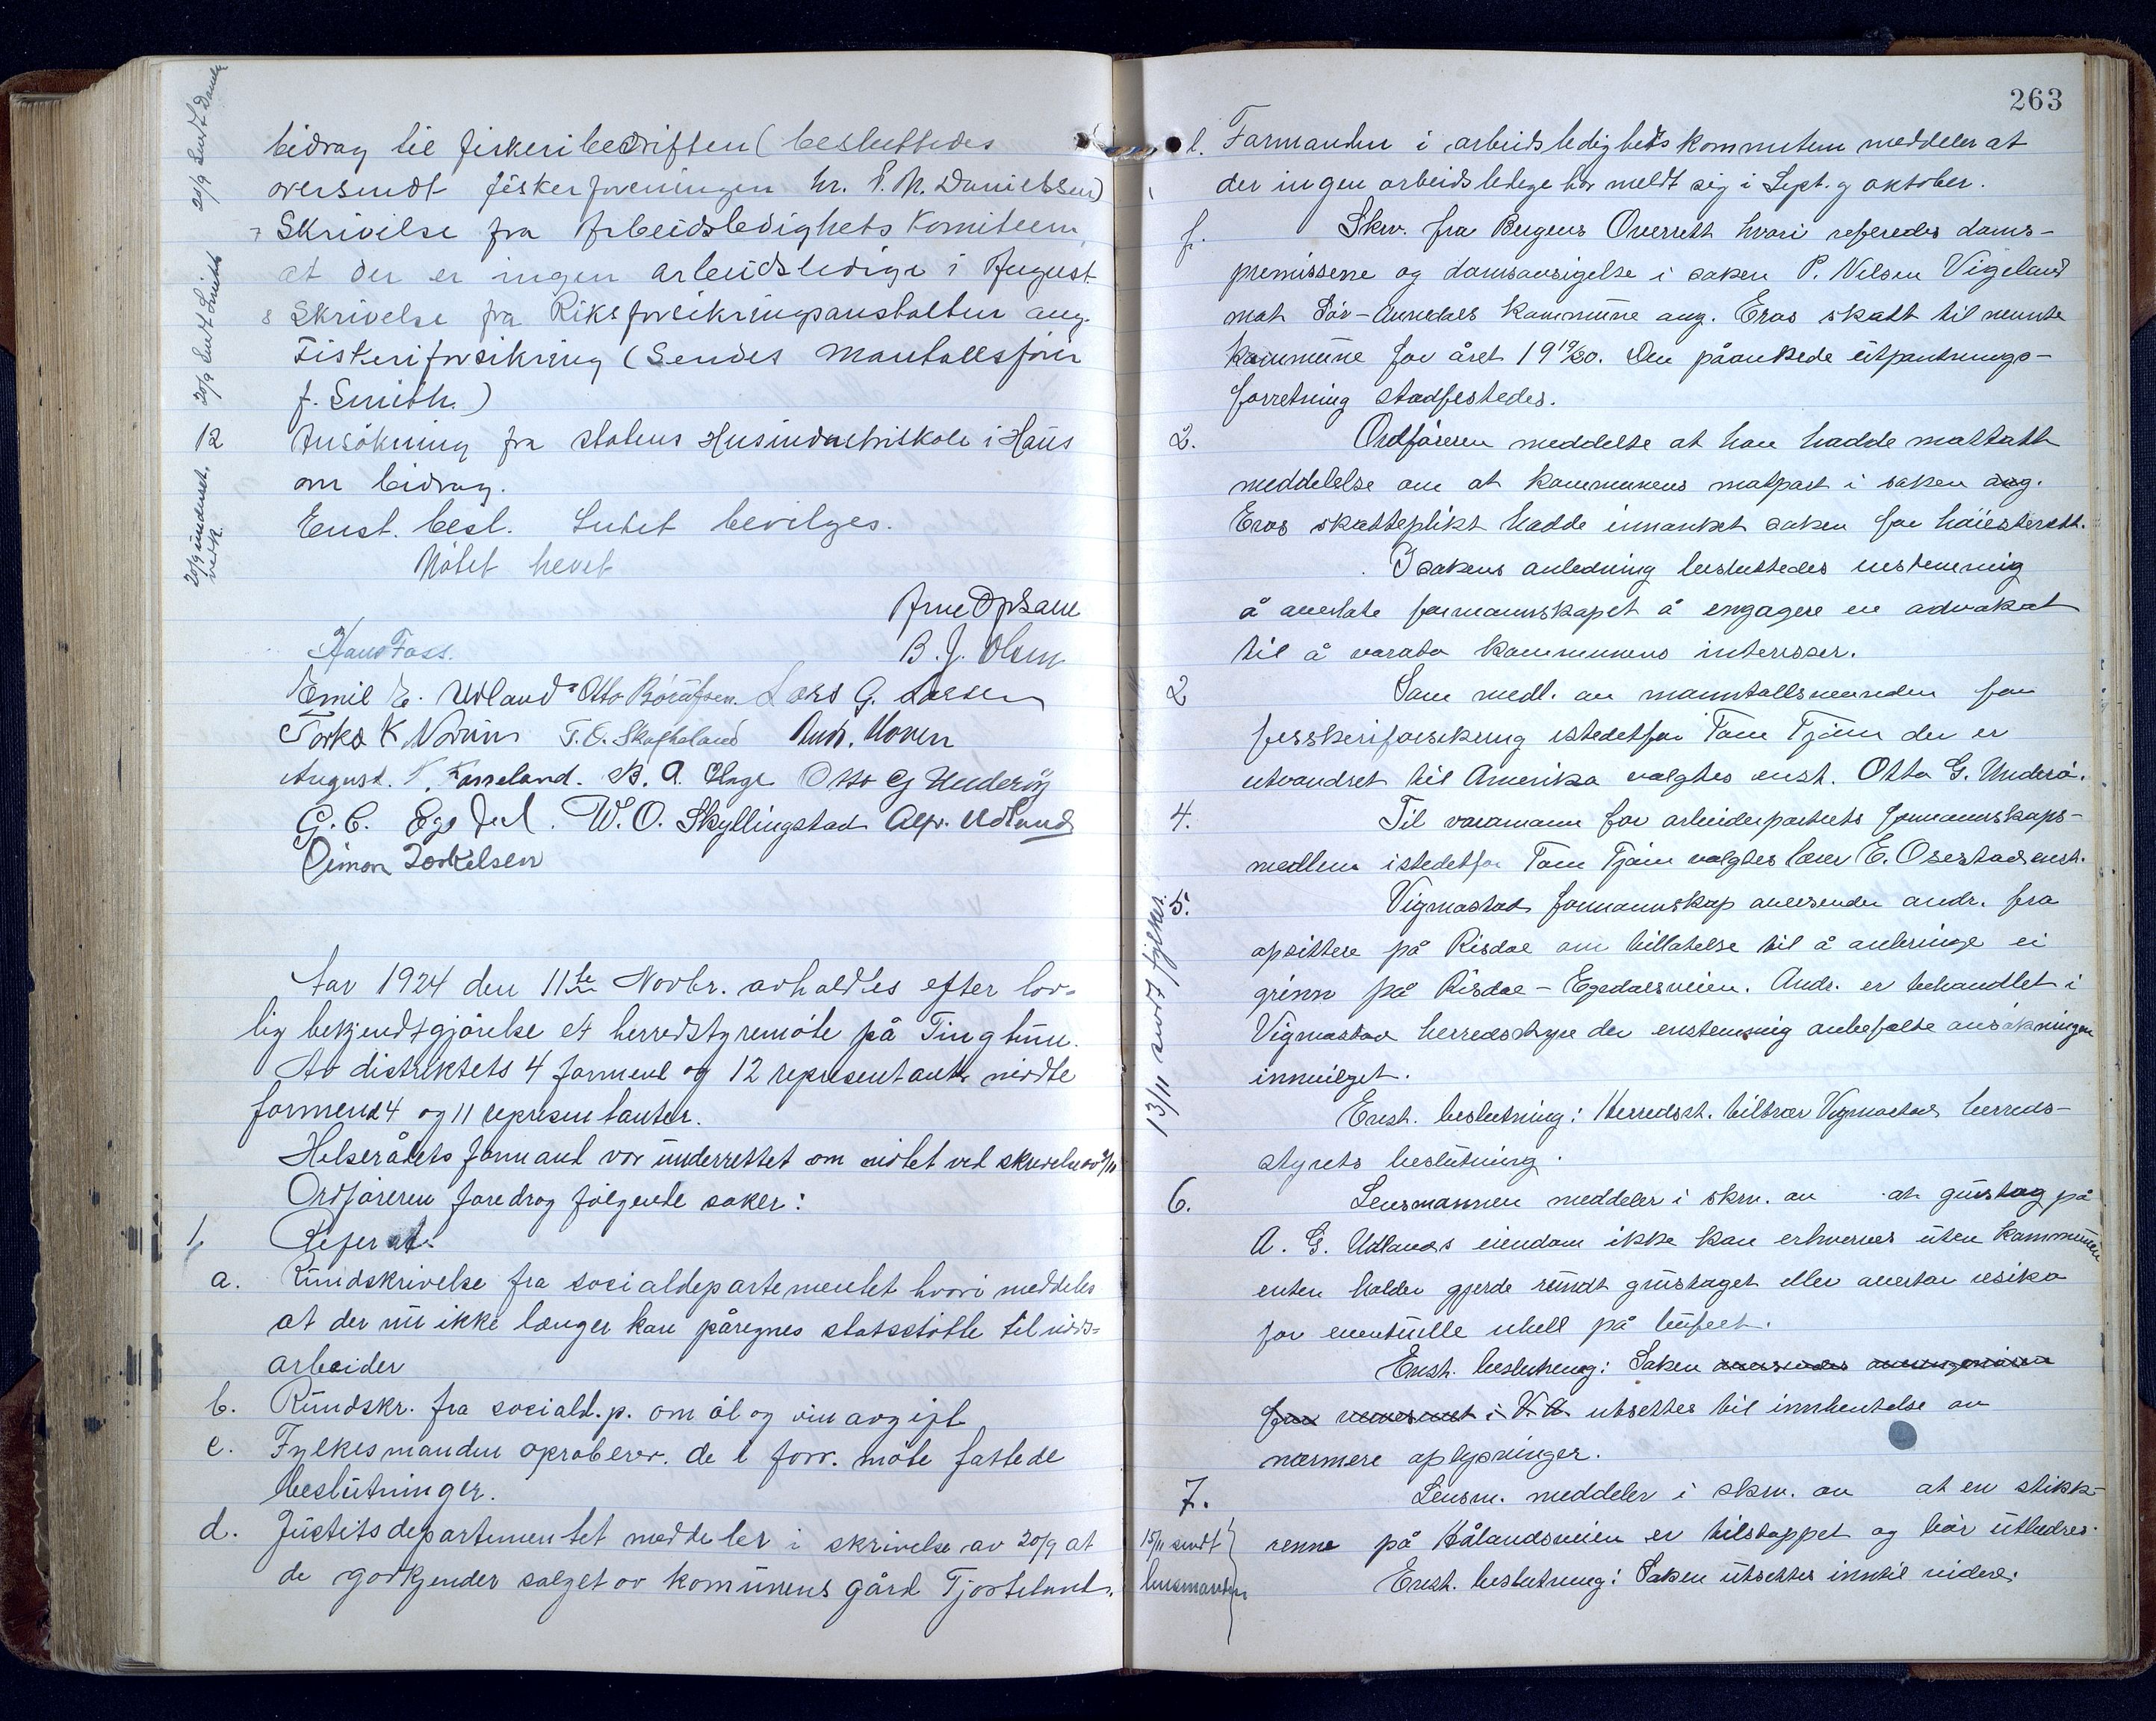 bidrag til fiskeribedriften (besluttedes
oversendt fiskerforeningen hr. P. N. Danielsen)
7 Skrivelse fra Arbeidsledighets Komiteen,
at der er ingen arbeidsledige i August.
8 Skrivelse fra Riksforsikringsanstalten ang.
Fiskeriforsikring (Sendes Mantallsfører
f. Smith.)
12 Ansökning fra statens Husindustriskole i Haus
om bidrag.
Enst. besl. Intet bevilges.
Mötet hevet
20/9 sendt Daniels
20/9 sendt Smith
20/9 underret.
vedk.
Arne Opsal
Hans Foss. B. J. Olsen
Emil E. Udland Otto Lars G. Larsen
K. Norum T. O. Skofteland Andr. Hoven
August. T. Fasseland. B. A. Otto G Underöy
G. C. Egedal. W. O. Skyllingstad Alfr. Udland
Simon Torkelsen
Aar 1924 den 11te Novbr. avholdtes efter lov-
lig bekjendtgjörelse et herredstyremöte på Tinghus.
Av distriktets 4 formend og 12 representanter mödte
formend 4 og 11 representanter.
Helserådets formand var underrettet om mötet ved skrivelse av 7/11
Ordföreren foredrog fölgende saker:
1. Referat.
a. Rundskrivelse fra socialdepartementet hvori meddeles
at der nu ikke længer kan påregnes statsstötte til nöds-
arbeider
b. Rundskr. fra sociald.p. om öl og vinavgift
c. Fylkesmanden aproberer de i forr. möte fattede
beslutninger.
d. Justitsdepartementet meddeler i skrivelse av 20/9 at
de godkjender salget av komunens gård Tjosteland.
263
l. Formanden i arbeidsledighetskommiteen meddeler at
der ingen arbeidsledige har meldt sig i Sept. og oktober.
f. Skriv. fra Bergens Overrett hvori referedes doms-
premissene og domsavsigelse i saken P. Nilsen Vigeland
mot Sör-Audnedals Kommune ang. Eros skatt til nevnte
kommune for året 1919/20. Den påankede utpantnings-
forretning stadfestedes.
2. Ordföreren meddelte at han hadde mottatt
meddelelse om at kommunens motpart i saken ang.
Eros skatteplikt hadde innanket saken for höiesterett.
I sakens anledning besluttedes enstemmig
å overlate formannskapet å engagere en advokat
til å vareta kommunens interesser.
2 Som medl. av manntallsnevnden for
fisskeriforsikring istedetfor Tom Tjöm der er
utvandret til Amerika valgtes enst. Otto G. Underö.
4. Til varamann for arbeiderpartiets formannskaps-
medlem istedetfor Tom Tjöm valgtes lærer E. Osestad enst.
5. Vigmostad formannskap oversender andr. fra
opsittere på Risdal om tillatelse til å anbringe ei
grinn på Risdal – Egedalsveien. Andr. er behandlet i
Vigmostad herredstyre der enstemmig anbefalte ansökningen
innvilget.
Enst. beslutning: Herredst. tiltrær Vigmostad herreds-
styrets beslutning.
13/11 sendt fylket.
6. Lensmannen meddeler i skriv. av at grustag på
A. G. Udlands eiendom ikke kan erhverves uten kommunen
enten holder gjerde rundt grustaget eller overtar risiko
for eventuelle uhell på bufeet.
Enst. beslutning: Saken oversendes
i V. A. utsettes til innhentelse av
nærmere oplysninger.
7. Lensm. meddeler i skriv. av at en stikk-
renne på Hålandsveien er tilstoppet og bör utbedres.
15/11 sendt
lensmanden
Enst. beslutning: Saken utsettes inntil videre.